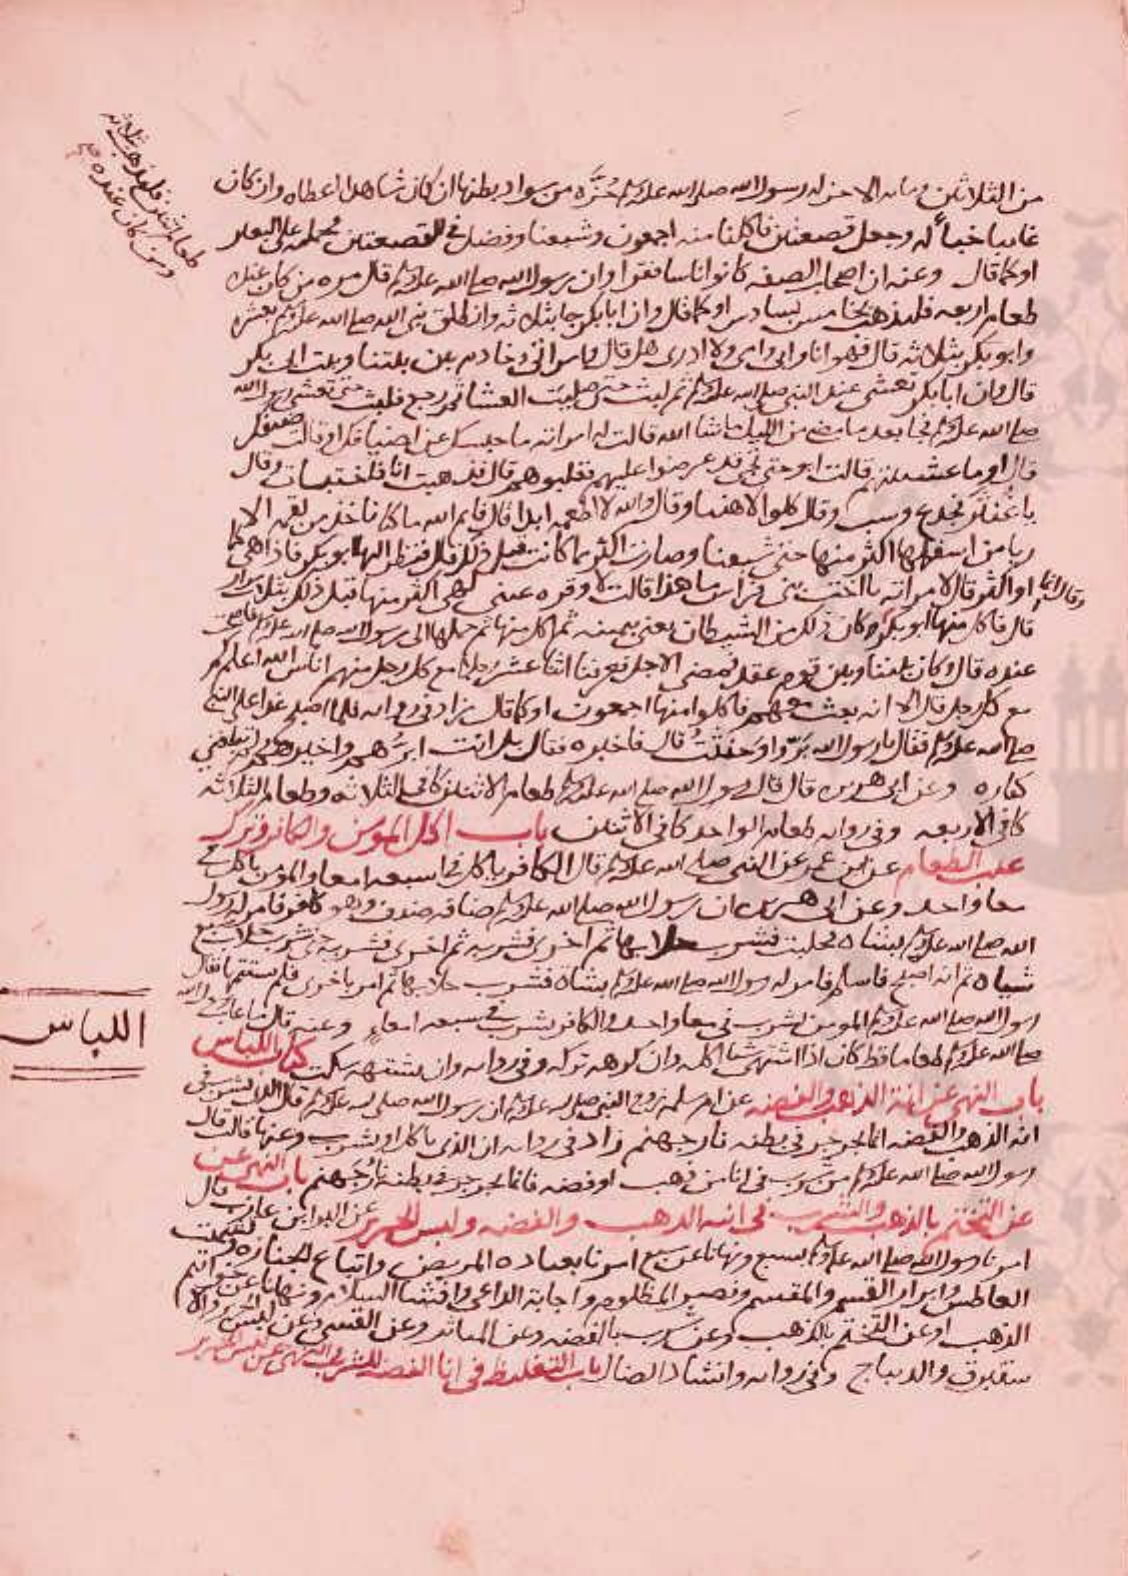 طعام اثنين فليذهب بثلاثة
ومن كان عنده
من الثلاثين ومايه الا حز له رسول الله صلى الله عليه وسلم حزه من سواد بطنها ان كان شاهدا اعطاه وان كان
غايبا خبأ له وجعل قصعتين فاكلنا منه اجمعون وشبعنا وفضل في القصعتين فحملته على البعير
او كما قال وعنه ان اصحاب الصفه كانوا ناسا فقرا وان رسول الله صلى الله عليه وسلم قال مره من كان عنده
طعام اربعه فليذهب بخامس بسادس او كما قال وان ابا بكر جا بثلاثه وانطلق نبي الله صلى الله عليه وسلم بعشره
وابو بكر بثلاثه قال فهو انا وابي وامي ولا ادري هل قال وامراتي وخادم بين بيتنا وبيت ابي بكر
قال وان ابا بكر تعشى عند النبي صلى الله عليه وسلم ثم لبث حتى صليت العشا ثم رجع فلبث حتى تعشى رسول الله
صلى الله عليه وسلم فجا بعد ما مضى من الليل ما شا الله قالت له امراته ما حبسك عن اضيافك او قالت ضيفك
قال او ما عشيتهم قالت ابوا حتى تجي قد عرضوا عليهم فغلبوهم قال فذهبت انا فاختبات وقال
يا غنثر فجدع وسب وقال كلوا لا هنيا وقال والله لا اطعمه ابدا قال فايم الله ما كنا ناخذ من لقمه الا
ربا من اسفلها اكثر منها حتى شبعنا وصارت اكثر مما كانت قبل ذلك فنظر اليها ابو بكر فاذا هي كما
او اكثر قال لامراته يا اخت بني فراس ما هذا قالت لا وقره عيني لهي اكثر منها قبل ذلك بثلاث مرار
قال فاكل منها ابو بكر وقال انما كان ذلك من الشيطان يعني يمينه ثم اكل منها ثم حملها الى رسول الله صلى الله عليه وسلم فاصبحت
عنده قال وكان بيننا وبين قوم عقد فمضى الاجل فعرفنا اثنا عشر رجلا مع كل رجل منهم اناس الله اعلم كم
مع كل رجل قال الا انه بعث معهم فاكلوا منها اجمعون او كما قال زاد في روايه فلما اصبح غدا على النبي
صلى الله عليه وسلم فقال يا رسول الله بروا وحنثت قال فاخبره فقال بل انت ابرهم واخيرهم
كفاره وعن ابي هريره قال قال رسول الله صلى الله عليه وسلم طعام الاثنين كافي الثلاثه وطعام الثلاثه
كافي الاربعه وفي روايه طعام الواحد كافي الاثنين باب اكل المومن والكافر وترك
عيب الطعام عن ابن عمر عن النبي صلى الله عليه وسلم قال الكافر ياكل في سبعه امعا والمومن ياكل في
معا واحد وعن ابي هريره ان رسول الله صلى الله عليه وسلم ضافه ضيف وهو كافر فامر له رسول
الله صلى الله عليه وسلم بشاه فحلبت فشرب حلابها ثم اخرى فشربه ثم اخرى فشربه حتى شرب حلاب سبع
شياه ثم انه اصبح فاسلم فامر له رسول الله صلى الله عليه وسلم بشاه فشرب حلابها ثم امر باخرى فلم يستتمها فقال
رسول الله صلى الله عليه وسلم المومن يشرب في معا واحد والكافر يشرب في سبعه امعاء وعنه قال ما عاب رسول الله
صلى الله عليه وسلم طعاما قط كان اذا اشتهى شيا اكله وان كرهه تركه وفي روايه وان لم يشتهه سكت كتاب اللباس
اللباس
باب النهي عن انيه الذهب والفضه عن ام سلمه زوج النبي صلى الله عليه وسلم ان رسول الله صلى الله عليه وسلم قال الذي يشرب في
انيه الذهب والفضه انما يجرجر في بطنه نار جهنم زاد في روايه ان الذي ياكل او يشرب وعنها قالت قال
رسول الله صلى الله عليه وسلم من شرب في انا من ذهب او فضه فانما يجرجر في بطنه نار جهنم باب النهي عن
عن التختم بالذهب والشرب في انيه الذهب والفضه ولبس الحرير عن البرا بن عازب قال
امرنا رسول الله صلى الله عليه وسلم بسبع ونهانا عن سبع امرنا بعياده المريض واتباع الجنازه وتشميت
العاطس وابرار القسم او المقسم ونصر المظلوم واجابه الداعي وافشا السلام ونهانا عن خواتيم
الذهب او عن التختم بالذهب وعن شرب بالفضه وعن المياثر وعن القسي وعن لبس الحرير والا
ستبرق والديباج وفي روايه وانشاد الضال باب التغليظ في انا الفضه للشرب والنهي عن لبس الحرير